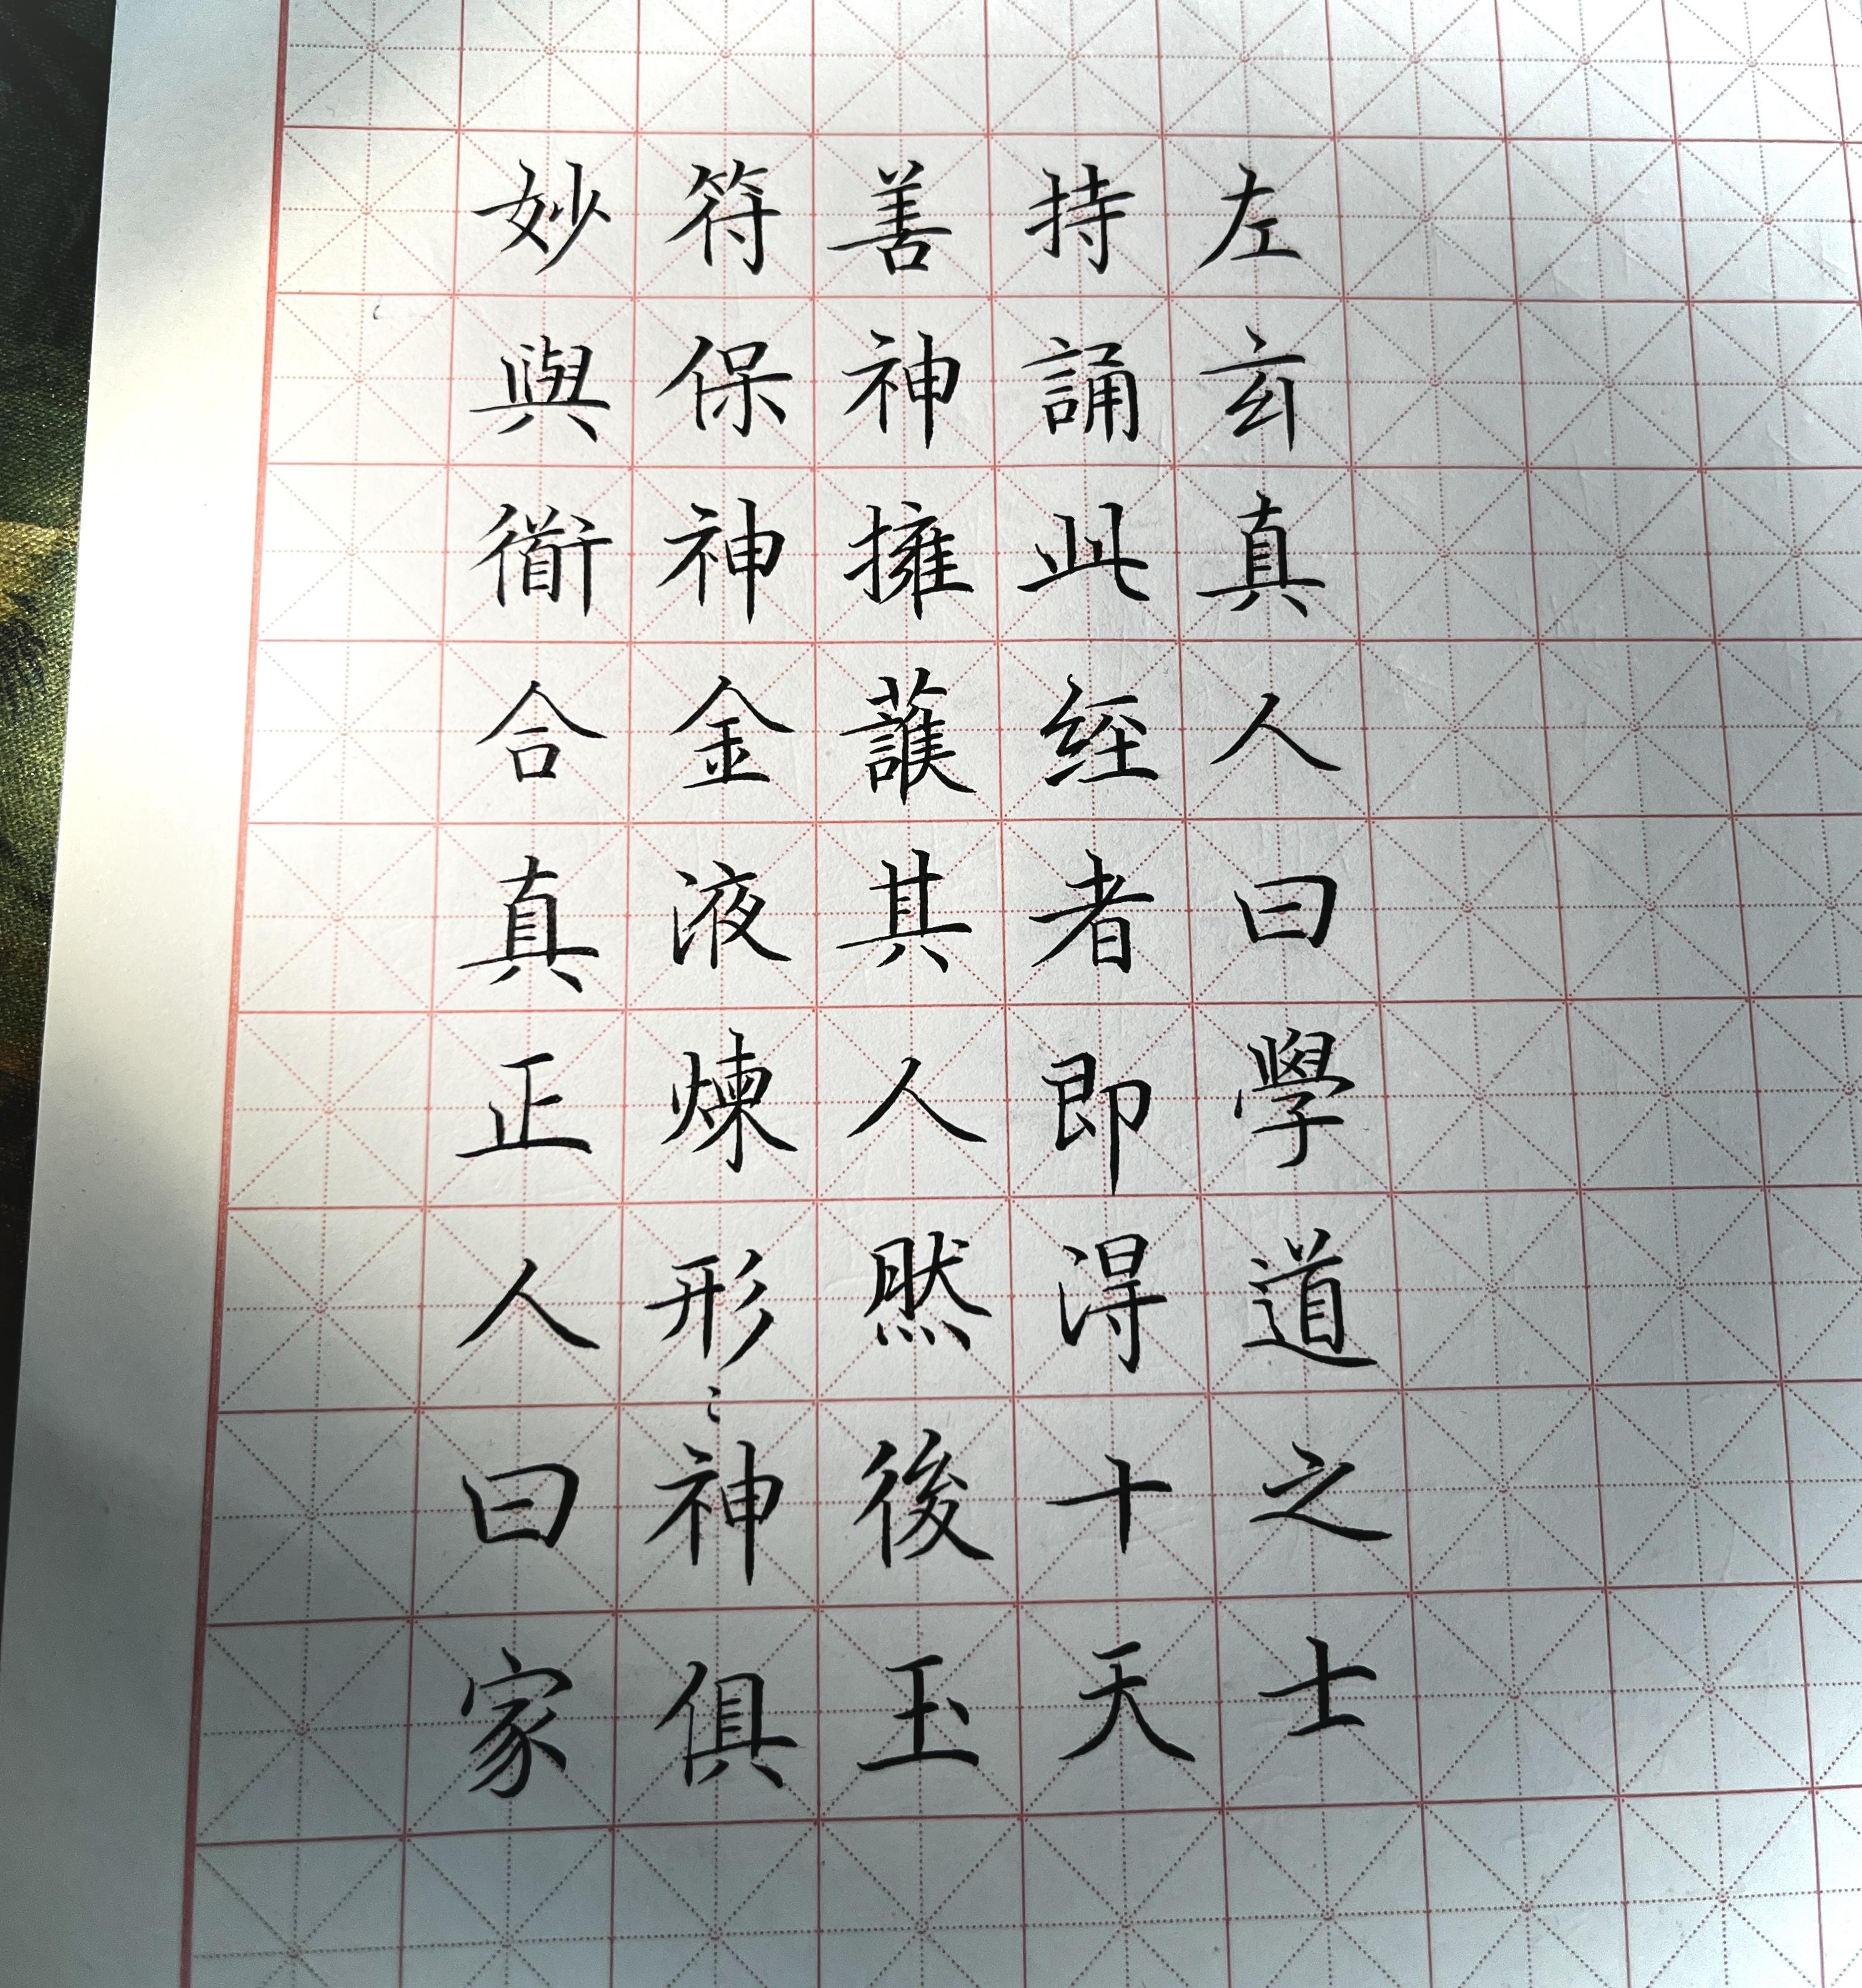 左玄真人曰學道之士
持誦此経者即淂十天
善神擁䕶其人然後玉
符保神金液煉形〻神俱
妙與衜合真正人曰家